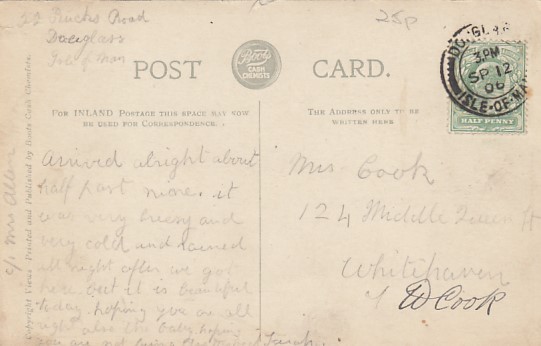 Road
Douglass
Isle of Man
25p
POST CARD.
Boots
CASH
CHEMISTS
DOUGLAS
3. PM
SP 12
06
ISLE-OF-MAN
HALF PENNY
FOR INLAND POSTAGE THIS SPACE MAY NOW
BE USED FOR CORRESPONDENCE.
THE ADDRESS ONLY TO BE
WRITTEN HERE
Copyright Views Printed and Published by Boots Cash Chemists.
c/o Mrs Allen
Arrived alright about
half past nine. it
was very breesy and
very cold and rained
all right after we got
here but it is beautiful
today hoping you are all
right also the baby hoping
you are not
Mrs Cook
124 Middle Queen St
Whitehaven
Cook